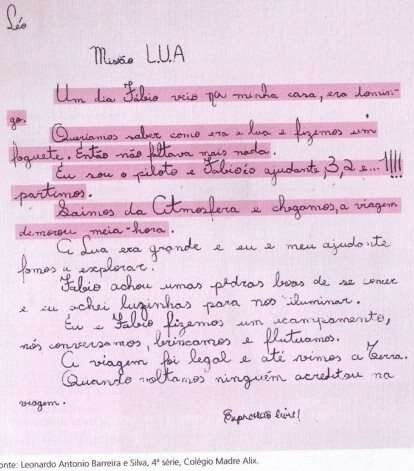 Léo
Missão L.U.A
Um dia Fábio veio na minha casa, era domin-
go.
Queriamos saber como era a lua e fizemos um
foguete. Então não faltava mais nada.
Eu sou o piloto e Fábio é o ajudante, 3, 2 e... 1!!!!
partimos.
Saimos da Atmosfera e chegamos, a viagem
demorou meia-hora.
A Lua era grande e eu e meu ajudante
fomos a explorar.
Fábio achou umas pedras boas de se comer
e eu achei luzinhas para nos iluminar.
Eu e Fábio fizemos um acampamento,
nós conversamos, brincamos e flutuamos.
A viagem foi legal e até vimos a Terra.
Quando voltamos ninguém acreditou na
viagem.
Expressão livre!
onte: Leonardo Antonio Barreira e Silva, 4ª série, Colégio Madre Alix.